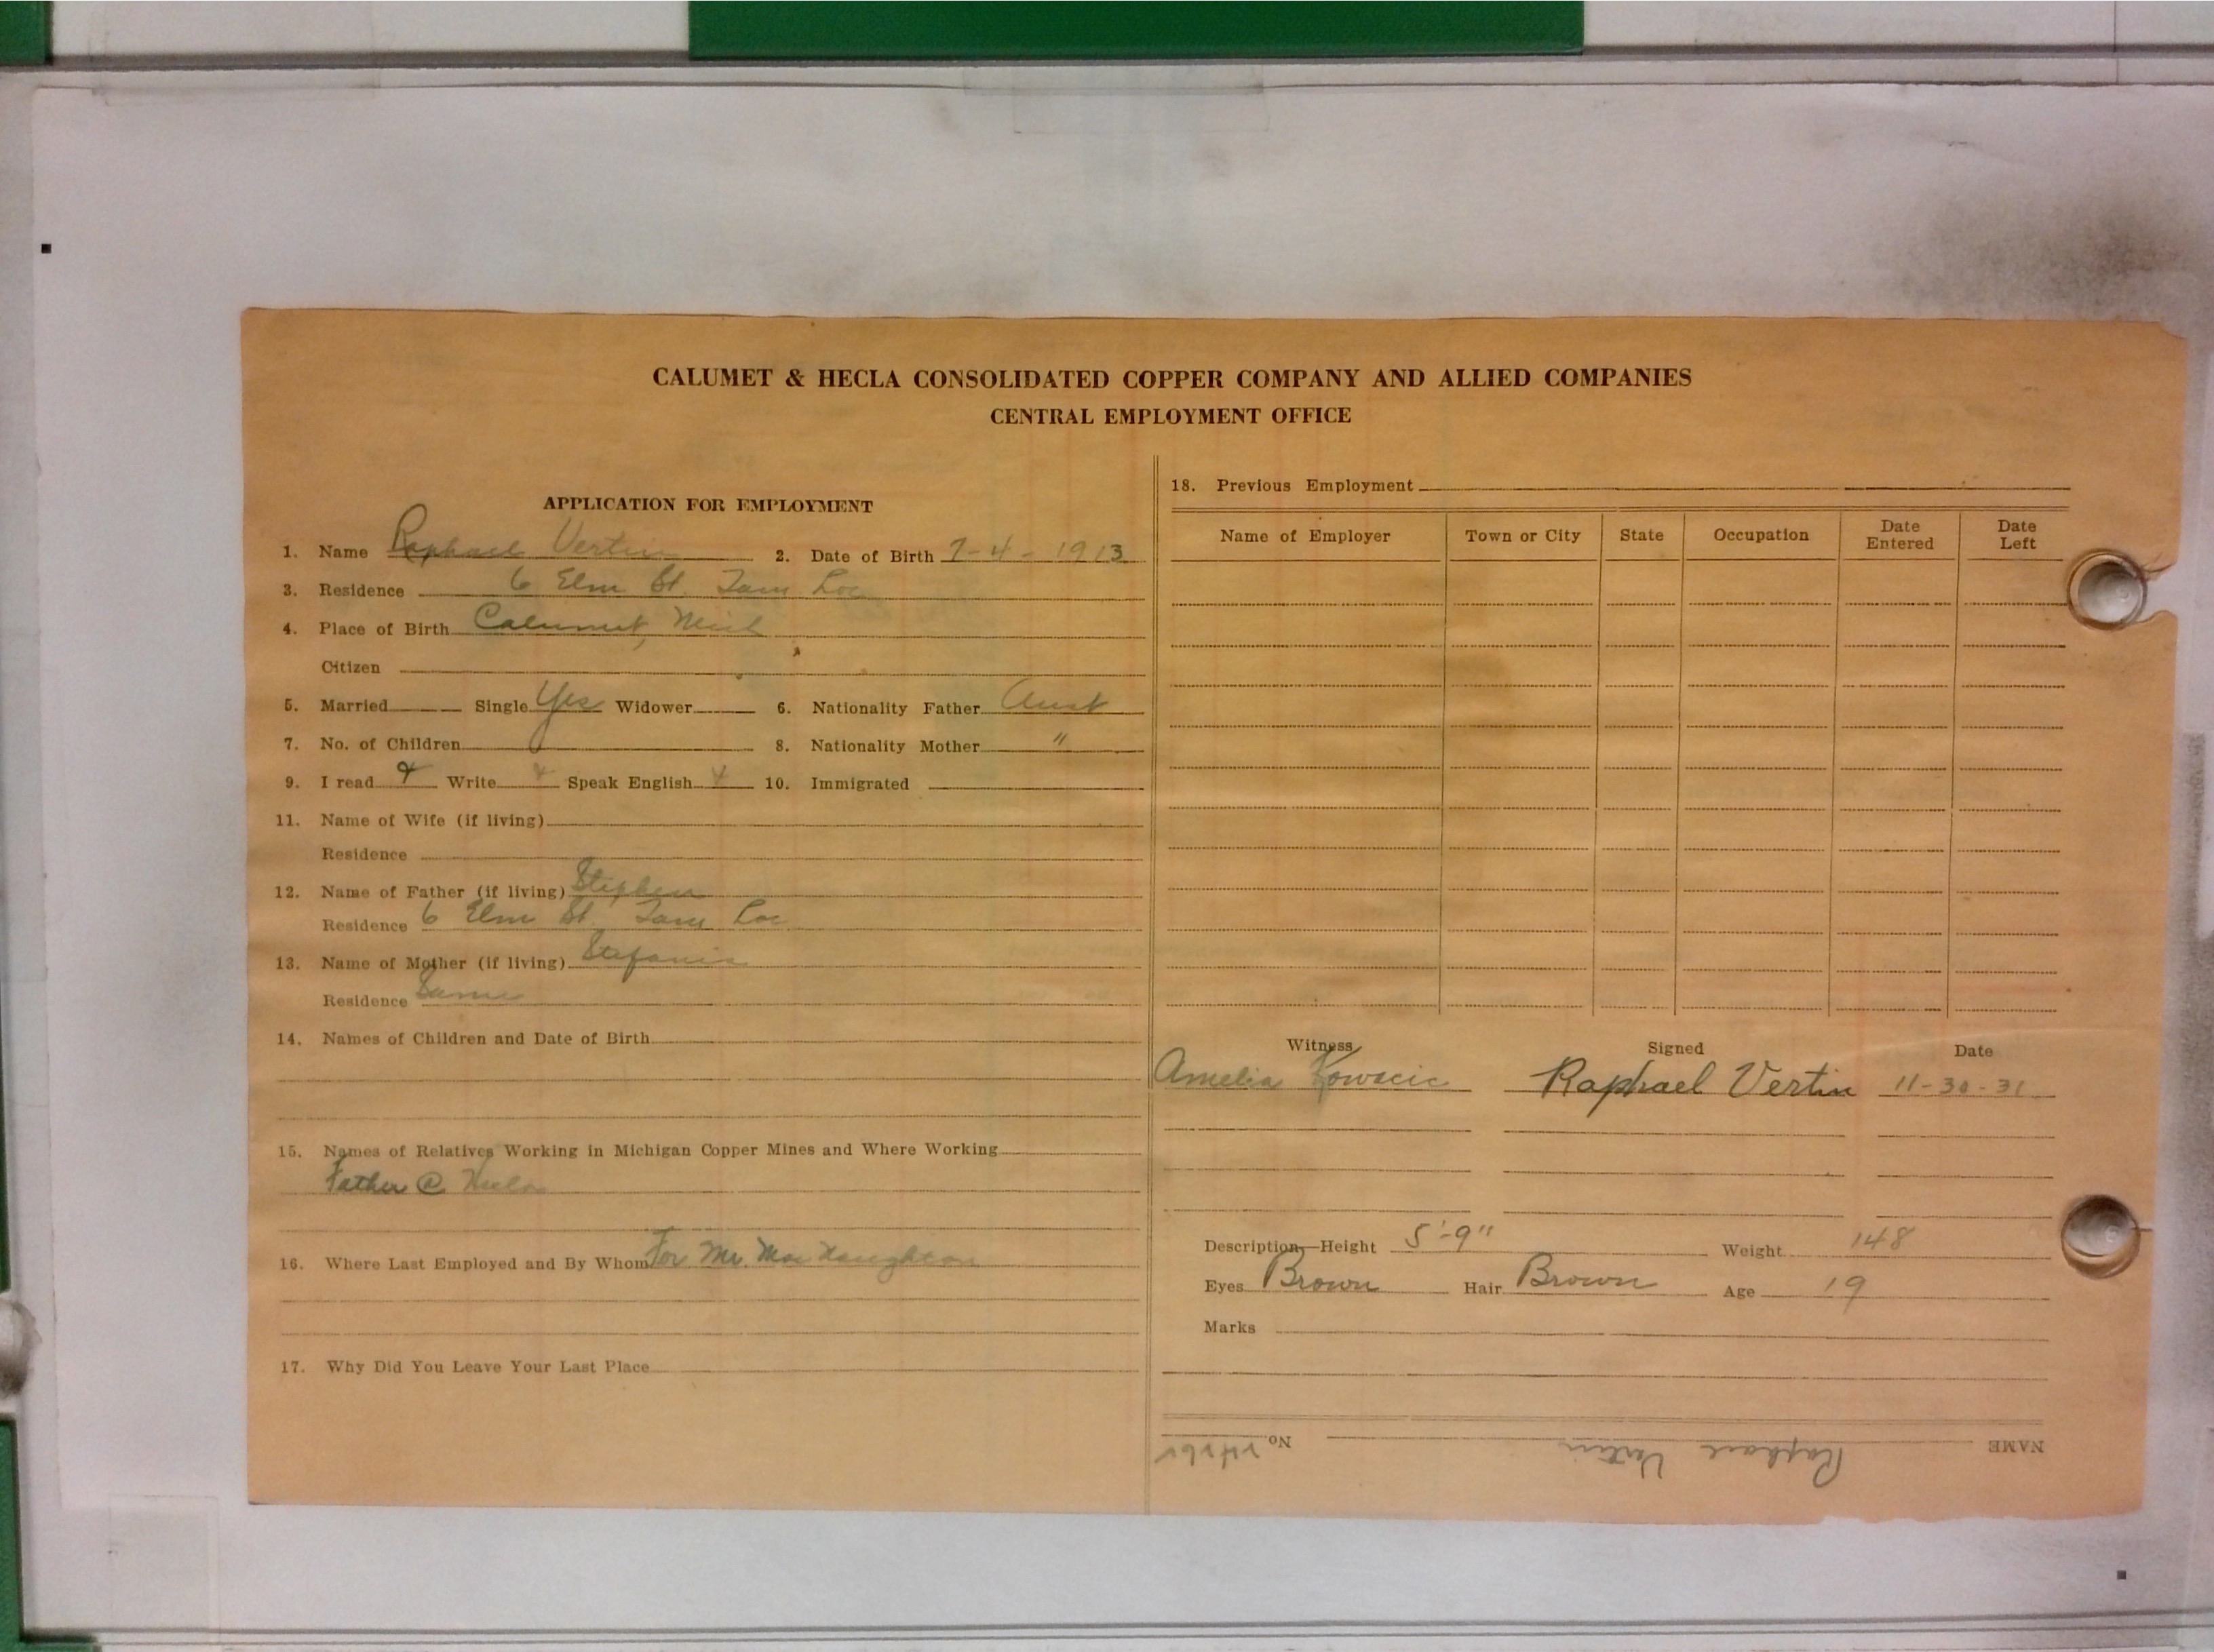 CALUMET & HECLA CONSOLIDATED COPPER COMPANY AND ALLIED COMPANIES
CENTRAL EMPLOYMENT OFFICE
APPLICATION FOR EMPLOYMENT
1. Name Raphael Vertin 2. Date of Birth 7-4-1913
3. Residence 6 Elm St. Tam Loc
4. Place of Birth Calumet, Mich
Citizen
5. Married Single Yes Widower 6. Nationality Father Aust
7. No. of Children 8. Nationality Mother "
9. I read Write Speak English 10. Immigrated
11. Name of Wife (if living)
Residence
12. Name of Father (if living) Stephen
Residence 6 Elm St. Tam Loc
13. Name of Mother (if living) Stefania
Residence Same
14. Names of Children and Date of Birth
15. Names of Relatives Working in Michigan Copper Mines and Where Working
Father @
16. Where Last Employed and By Whom For Mr. MacNaughton
17. Why Did You Leave Your Last Place
18. Previous Employment
Name of Employer Town or City State Occupation Date Entered Date Left
Witness Signed Date
Amelia Kowacic Raphael Vertin 11-30-31
Description—Height 5'-9" Weight 148
Eyes Brown Hair Brown Age 19
Marks
NAME Raphael Vertin No